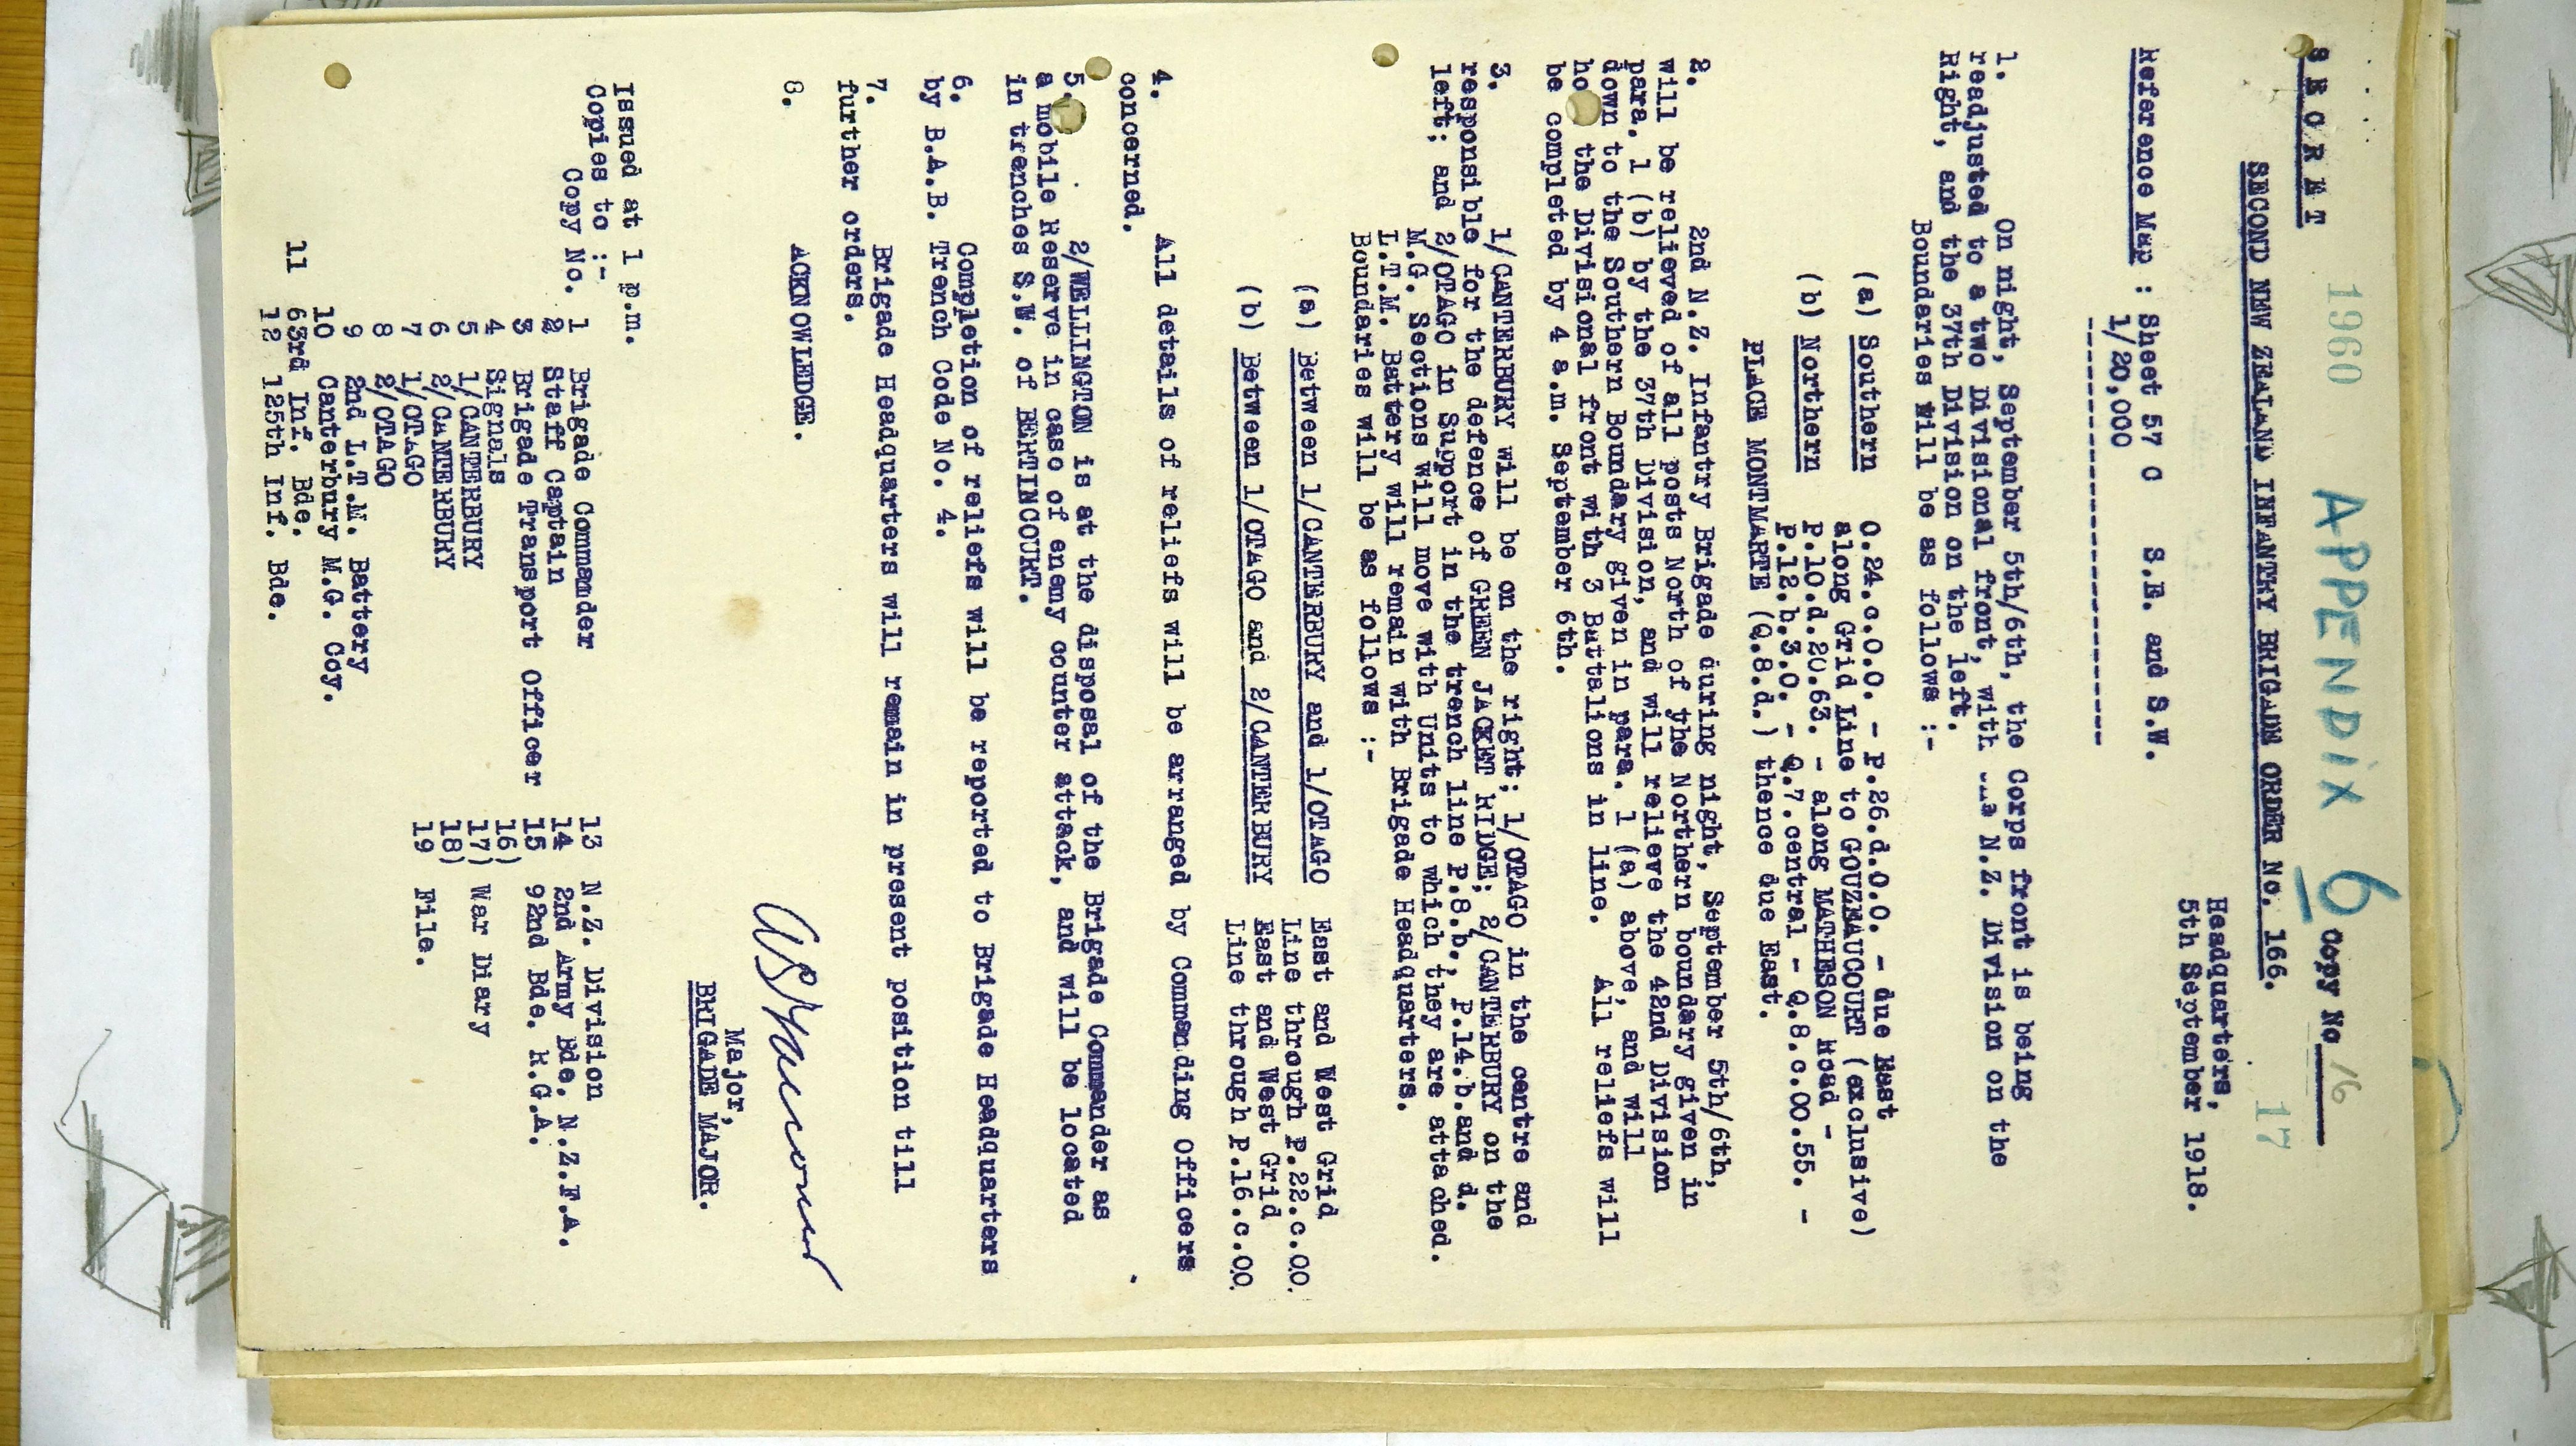 1960 APPENDIX 6 Copy No 16
17
SECRET
SECOND NEW ZEALAND INFANTRY BRIGADE ORDER No. 166.
Headquarters,
5th September 1918.
Reference Map : Sheet 57 C S.E. and S.W.
1/20,000
---------------------------
1. On night, September 5th/6th, the Corps front is being
readjusted to a two Divisional front, with N.Z. Division on the
Right, and the 37th Division on the left.
Boundaries will be as follows :-
(a) Southern O.24.c.0.0. - P.26.d.0.0. - due East
along Grid Line to GOUZEAUCOURT (exclusive)
(b) Northern P.10.d.20.63. - along MATHESON Road -
P.12.b.3.0. - Q.7.central - Q.8.c.00.55. -
PLACE MONTMARTE (Q.8.d.) thence due East.
2. 2nd N.Z. Infantry Brigade during night, September 5th/6th,
will be relieved of all posts North of the Northern boundary given in
para. 1 (b) by the 37th Division, and will relieve the 42nd Division
down to the Southern Boundary given in para. 1 (a) above, and will
ho the Divisional front with 3 Battalions in line. All reliefs will
be completed by 4 a.m. September 6th.
3. 1/CANTERBURY will be on the right; 1/OTAGO in the centre and
responsible for the defence of GREEN JACKET RIDGE; 2/CANTERBURY on the
left; and 2/OTAGO in Support in the trench line P.8.b., P.14.b.and d.
M.G. Sections will move with Units to which they are attached.
L.T.M. Battery will remain with Brigade Headquarters.
Boundaries will be as follows :-
(a) Between 1/CANTERBURY and 1/OTAGO East and West Grid
Line through P.22.c.0.0.
(b) Between 1/OTAGO and 2/CANTERBURY East and West Grid
Line through P.16.c.0.0.
4. All details of reliefs will be arranged by Commanding Officers
concerned.
5. 2/WELLINGTON is at the disposal of the Brigade Commander as
a mobile Reserve in case of enemy counter attack, and will be located
in trenches S.W. of BERTINCOURT.
6. Completion of reliefs will be reported to Brigade Headquarters
by B.A.B. Trench Code No. 4.
7. Brigade Headquarters will remain in present position till
further orders.
8. ACKNOWLEDGE.
Major,
BRIGADE MAJOR.
Issued at 1 p.m.
Copies to :-
Copy No. 1 Brigade Commander 13 N.Z. Division
2 Staff Captain 14 2nd Army Bde. N.Z.F.A.
3 Brigade Transport Officer 15 92nd Bde. R.G.A.
4 Signals 16)
5 1/CANTERBURY 17) War Diary
6 2/CANTERBURY 18)
7 1/OTAGO 19 File.
8 2/OTAGO
9 2nd L.T.M. Battery
10 Canterbury M.G. Coy.
11 63rd Inf. Bde.
12 125th Inf. Bde.